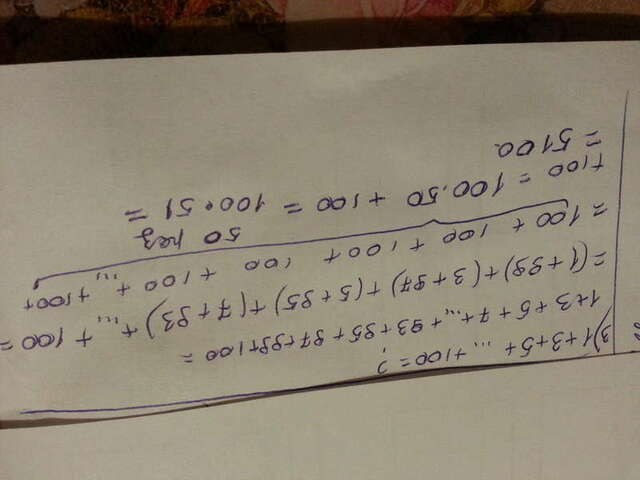 3) 1+3+5+ ... +100=?
1+3+5+7+...+93+95+97+99+100=
=(1+99)+(3+97)+(5+95)+(7+93)+...+100=
=100+100+100+100+100+...+100+
50 раз
+100=100.50+100=100•51=
=5100